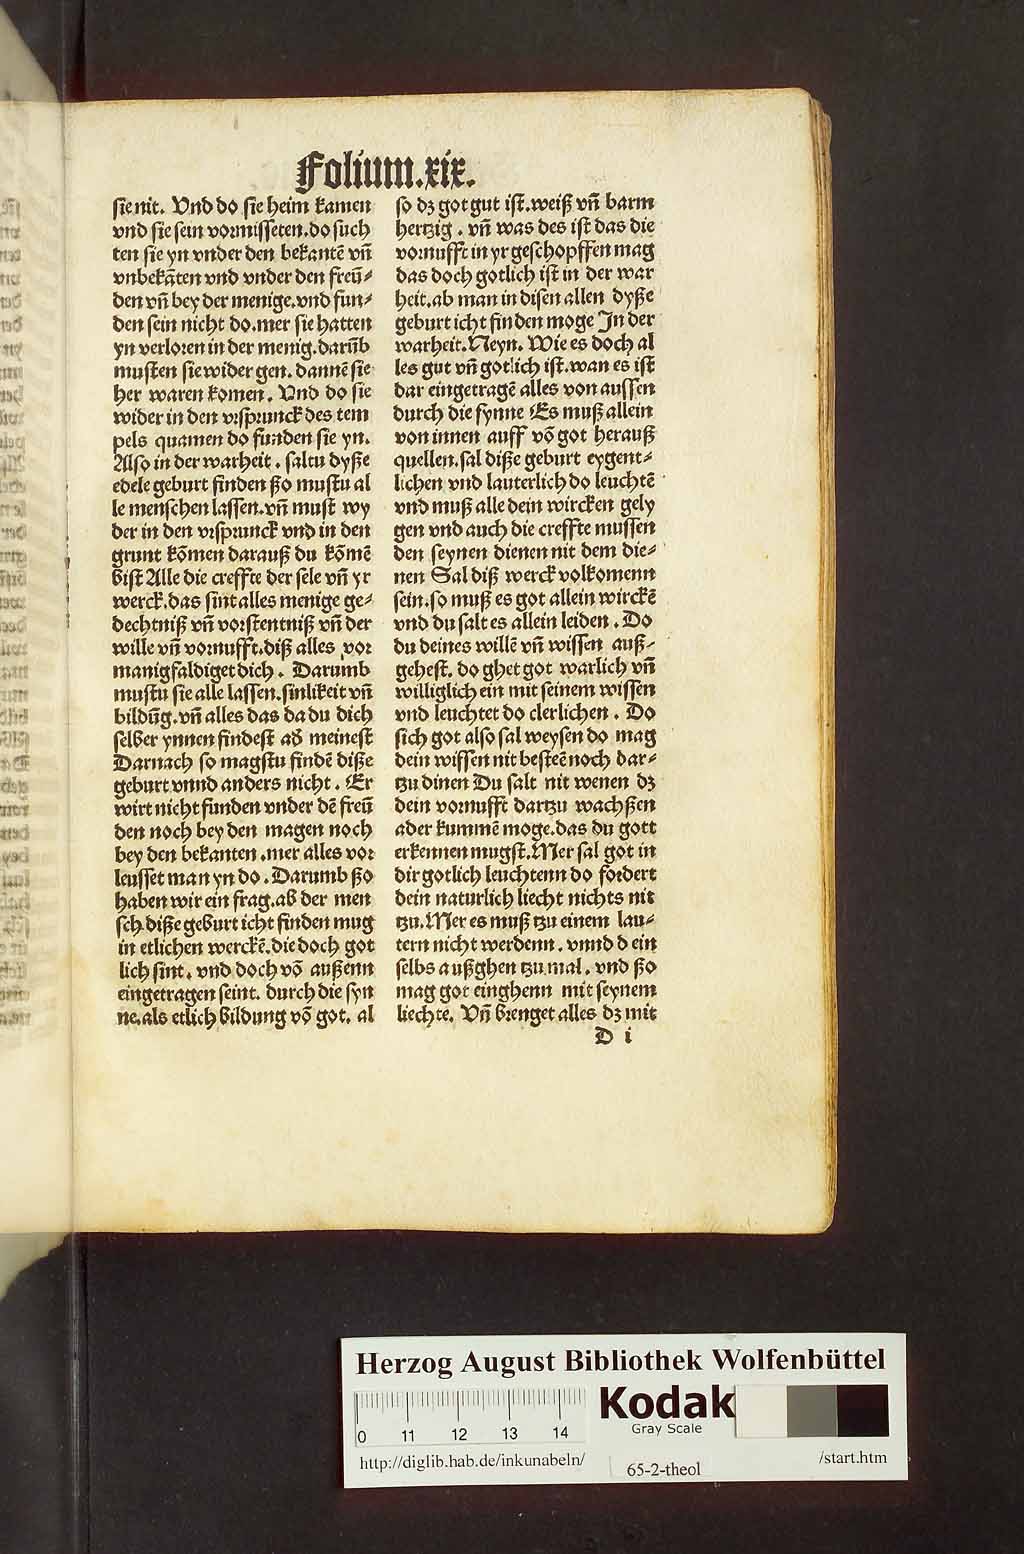 Folium.xix.
sie nit. Vnd do sie heim kamen
vnd sie sein vormisseten.do such
ten sie yn vnder den bekantē vn̄
vnbekāten vnd vnder den freū⸗
den vn̄ bey der menige.vnd fun⸗
den sein nicht do.mer sie hatten
yn verloren in der menig.darūb
musten sie wider gen. dannē sie
her waren komen. Vnd do sie
wider in den vrsprunck des tem
pels quamen do funden sie yn.
Also in der warheit. saltu dyße
edele geburt finden ßo mustu al
le menschen lassen.vn̄ must wy
der in den vrsprunck vnd in den
grunt kōmen darauß du kōmē
bist Alle die creffte der sele vn̄ yr
werck.das sint alles menige ge⸗
dechtniß vn̄ vorstentniß vn̄ der
wille vn̄ vornufft.diß alles vor
manigfaldiget dich. Darumb
mustu sie alle lassen.sinlikeit vn̄
bildūg.vn̄ alles das da du dich
selber ynnen findest ad meinest
Darnach so magstu findē diße
geburt vnnd anders nicht. Er
wirt nicht funden vnder dē freū
den noch bey den magen noch
bey den bekanten.mer alles vor
leusset man yn do. Darumb ßo
haben wir ein frag.ab der men
sch diße geburt icht finden mug
in etlichen werckē.die doch got
lich sint. vnd doch vō außenn
eingetragen seint. durch die syn
ne.als etlich bildung vō got. al
so dz got gut ist.weiß vn̄ barm
hertzig. vn̄ was des ist das die
vornufft in yr geschopffen mag
das doch gotlich ist in der war
heit.ab man in disen allen dyße
geburt icht finden moge In der
warheit.Neyn. Wie es doch al
les gut vn̄ gotlich ist.wan es ist
dar eingetragē alles von aussen
durch die synne Es muß allein
von innen auff vō got herauß
quellen.sal diße geburt eygent⸗
lichen vnd lauterlich do leuchtē
vnd muß alle dein wircken gely
gen vnd auch die creffte mussen
den seynen dienen nit dem die⸗
nen Sal diß werck volkomenn
sein.so muß es got allein wirckē
vnd du salt es allein leiden. Do
du deines willē vn̄ wissen auß⸗
gehest. do ghet got warlich vn̄
williglich ein mit seinem wissen
vnd leuchtet do clerlichen. Do
sich got also sal weysen do mag
dein wissen nit besteē noch dar⸗
tzu dinen Du salt nit wenen dz
dein vornufft dartzu wachßen
ader kummē moge.das du gott
erkennen mugst.Mer sal got in
dir gotlich leuchtenn do fordert
dein naturlich liecht nichts nit
tzu.Mer es muß tzu einem lau⸗
tern nicht werdenn. vnnd d ein
selbs außghen tzu mal. vnd ßo
mag got einghenn mit seynem
liechte. Vn̄ brenget alles dz mit
D i
Herzog August Bibliothek Wolfenbüttel
0 11 12 13 14
Kodak
Gray Scale
http://diglib.hab.de/inkunabeln/
65-2-theol
/start.htm